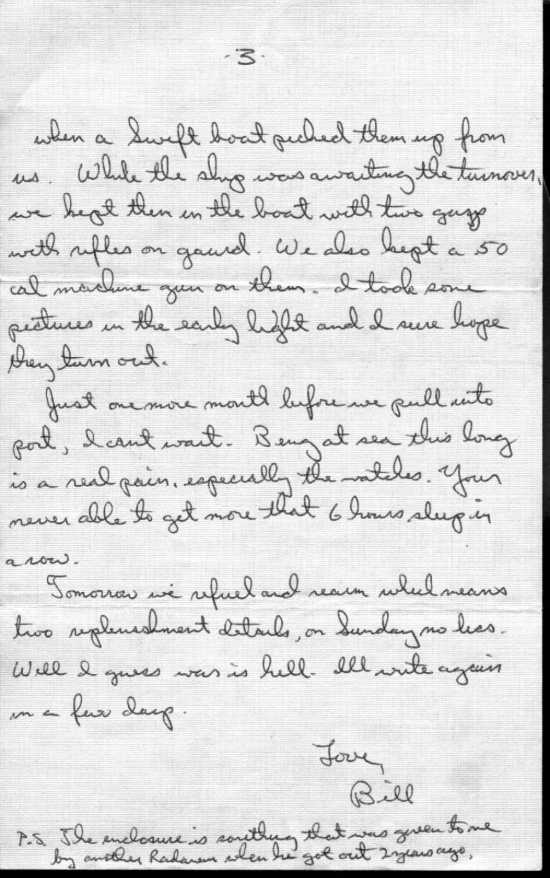 -3-
when a Swift boat picked them up from
us. While the ship was awaiting the turnover,
we kept them in the boat with two guys
with rifles on gaurd. We also kept a 50
cal machine gun on them. I took some
pictures in the early light and I sure hope
they turn out.
Just one more month before we pull into
port, I cant wait. Being at sea this long
is a real pain, especially the watches. Your
never able to get more that 6 hours sleep in
a row.
Tomorrow we refuel and rearm which means
two replenishment details, on Sunday no less.
Well I guess war is hell. Ill write again
in a few days.
Love,
Bill
P.S. The enclosure is something that was given to me
by another Radarman when he got out 2 years ago.